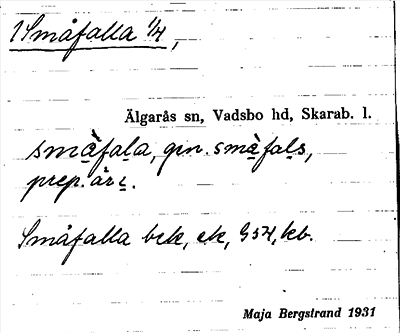 1 Småfalla 1/4,
Älgarås sn, Vadsbo hd, Skarab. l.
småfala, gen. småfals,
prep. är i.
Småfalla bek, ek, G54, kb.
Maja Bergstrand 1931